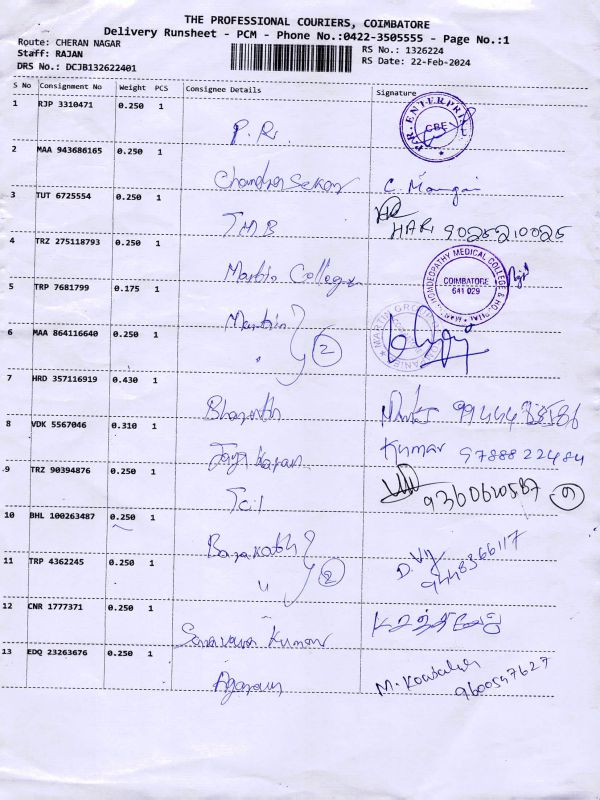 THE PROFESSIONAL COURIERS, COIMBATORE
Delivery Runsheet - PCM - Phone No.:0422-3505555 - Page No.:1
Route: CHERAN NAGAR
RS No.: 1326224
Staff: RAJAN
RS Date: 22-Feb-2024
DRS No.: DCJB132622401
S No Consignment No Weight PCS Consignee Details Signature
1 RJP 3310471 0.250 1
CBE
P.R.
2 MAA 943686165 0.250 1
Chandra Sekar C. Mangai
3 TUT 6725554 0.250 1
TMB HARI 9025210025
4 TRZ 275118793 0.250 1
HOMOEOPATHY MEDICAL COLLEGE &
COIMBATORE
641 029
Martin College
5 TRP 7681799 0.175 1
Martin
6 MAA 864116640 0.250 1
" 2
7 HRD 357116919 0.430 1
Bharath
8 VDK 5567046 0.310 1
Kumar 9788822484
9 TRZ 90394876 0.250 1
Tcil 9360620587
10 BHL 100263487 0.250 1
11 TRP 4362245 0.250 1
" 2
D. Vij
9448366117
12 CNR 1777371 0.250 1
Saravana Kumar
13 EDQ 23263676 0.250 1
M. Kousalya
9600547627